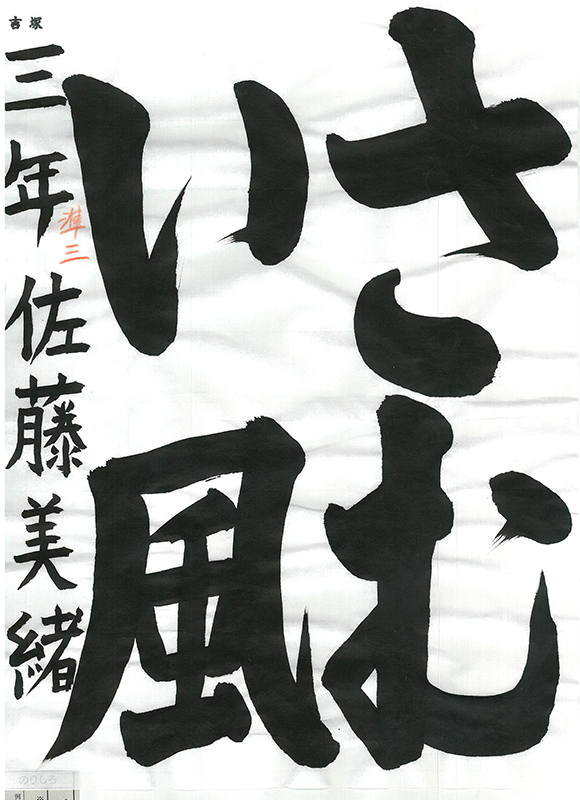 さむ
い風
吉塚
三年 佐藤美緒
準三
のりしろ
例
※